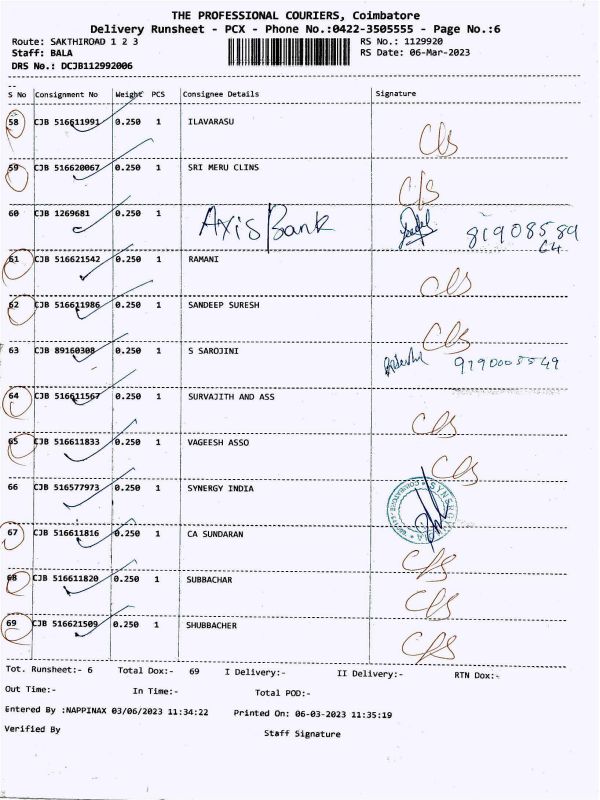 THE PROFESSIONAL COURIERS, Coimbatore
Delivery Runsheet - PCX - Phone No.:0422-3505555 - Page No.:6
Route: SAKTHIROAD 1 2 3 RS No.: 1129920
Staff: BALA RS Date: 06-Mar-2023
DRS No.: DCJB112992006
S No Consignment No Weight PCS Consignee Details Signature
58 CJB 516611991 0.250 1 ILAVARASU
Cls
59 CJB 516620067 0.250 1 SRI MERU CLINS
Cls
60 CJB 1269681 0.250 1 Axis Bank 8190858964
61 CJB 516621542 0.250 1 RAMANI
Cls
62 CJB 516611986 0.250 1 SANDEEP SURESH
Cls
63 CJB 89160308 0.250 1 S SAROJINI 9190008549
64 CJB 516611567 0.250 1 SURVAJITH AND ASS
Cls
65 CJB 516611833 0.250 1 VAGEESH ASSO
Cls
66 CJB 516577973 0.250 1 SYNERGY INDIA
67 CJB 516611816 0.250 1 CA SUNDARAN
Cls
68 CJB 516611820 0.250 1 SUBBACHAR
Cls
69 CJB 516621509 0.250 1 SHUBBACHER
Cls
Tot. Runsheet:- 6 Total Dox:- 69 I Delivery:- II Delivery:- RTN Dox:-
Out Time:- In Time:- Total POD:-
Entered By :NAPPINAX 03/06/2023 11:34:22 Printed On: 06-03-2023 11:35:19
Verified By Staff Signature